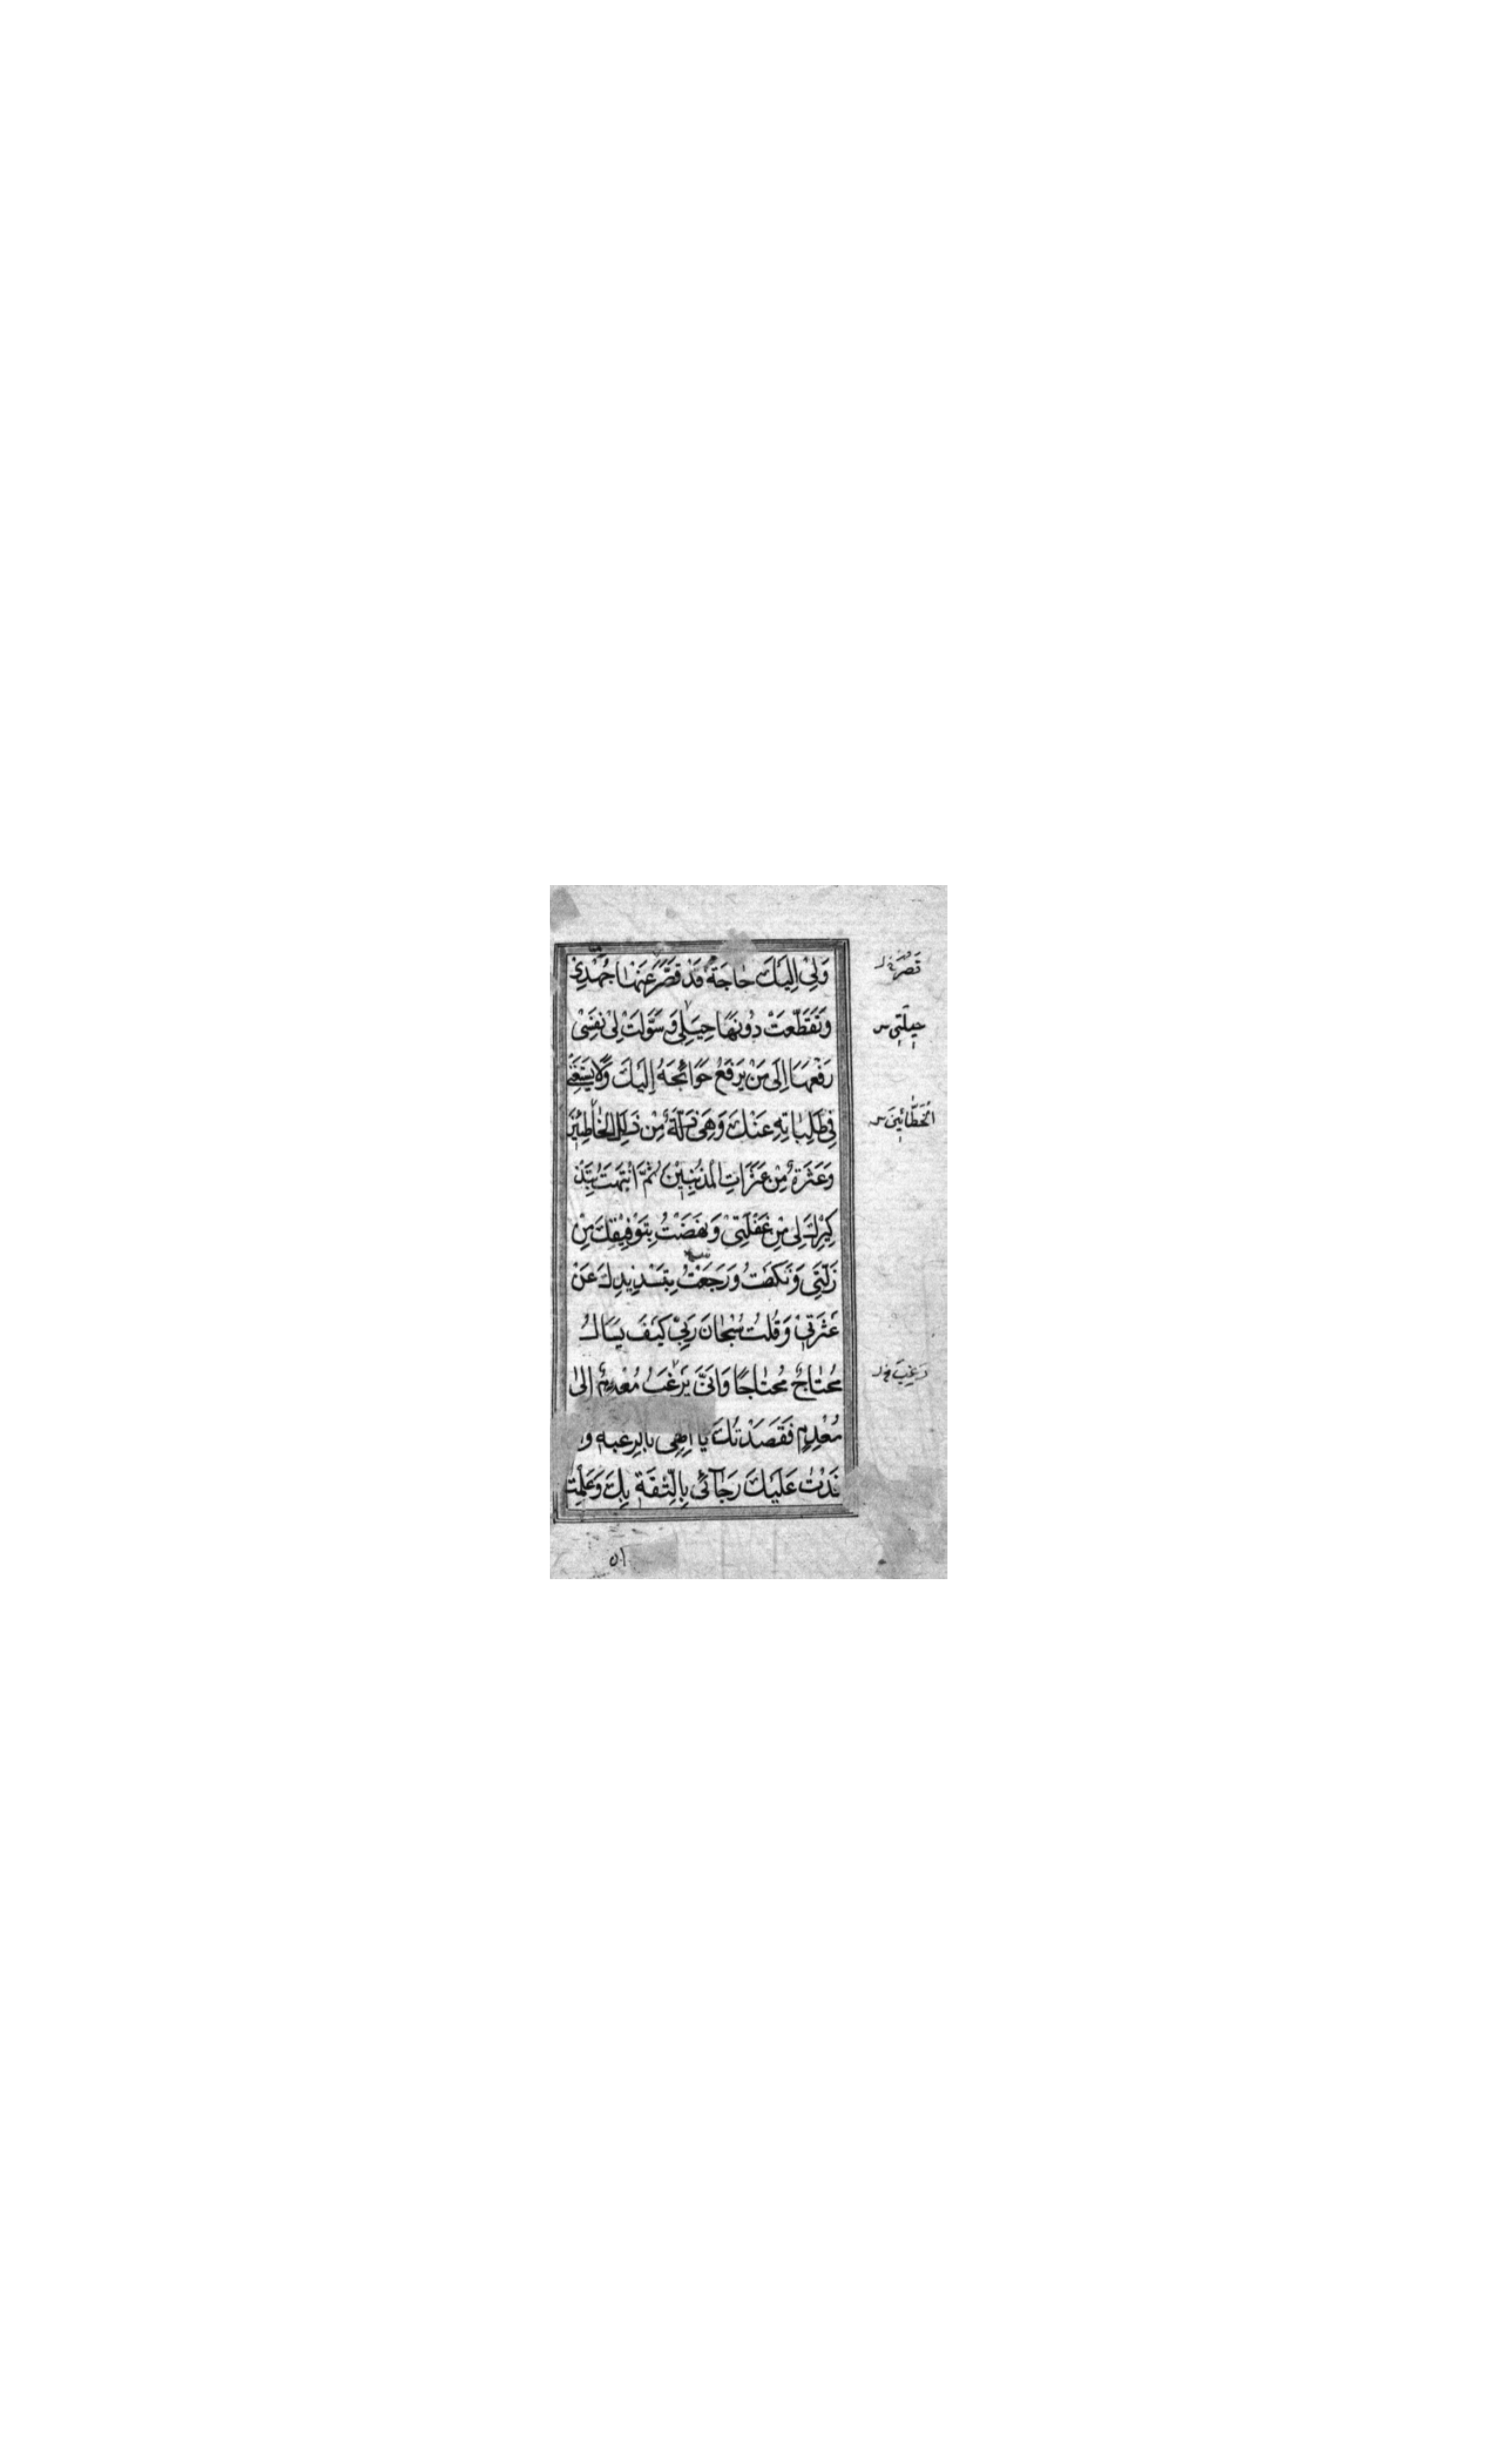 وَلِيْ اِلَيْكَ حٰاجَةٌ قَدْ قَصَّرَ عَنْهٰا جُهْدِيْ
وَتَقَطَّعَتْ دُوْنَهٰا حِيَلِيْ وَ سَوَّلَتْ لِيْ نَفْسِيْ
رَفْعَهَا اِلٰى مَنْ يَرْفَعُ حَوٰائِجَهُ اِلَيْكَ وَلَا يَسْتَغْنِيْ
فِيْ طَلِبٰاتِهِ عَنْكَ وَهِيَ زَلَّةٌ مِنْ زَلَلِ الْخٰاطِئِيْنَ
وَعَثْرَةٌ مِنْ عَثَرٰاتِ الْمُذْنِبِيْنَ ثُمَّ انْتَبَهْتُ بِتَذْ
كِيْرِكَ لِيْ مِنْ غَفْلَتِيْ وَنَهَضْتُ بِتَوْفِيْقِكَ مِنْ
زَلَّتِيْ وَنَكَصْتُ وَرَجَعْتُ بِتَسْدِيْدِكَ عَنْ
عَثْرَتِيْ وَقُلْتُ سُبْحٰانَ رَبِّيْ كَيْفَ يَسْاَلُ
مُحْتٰاجٌ مُحْتٰاجًا وَاَنّٰى يَرْغَبُ مُعْدِمٌ اِلٰى
مُعْدِمٍ فَقَصَدْتُكَ يٰا اِلٰهِيْ بِالرَّغْبَةِ وَ
فَدْتُ عَلَيْكَ رَجٰآئِيْ بِالثِّقَةِ بِكَ وَعَلِمْتُ
قَصُرَ خ ل
حِيْلَتِيْ س
الْخَطَّائِيْنَ س
رَغِبَ خ ل